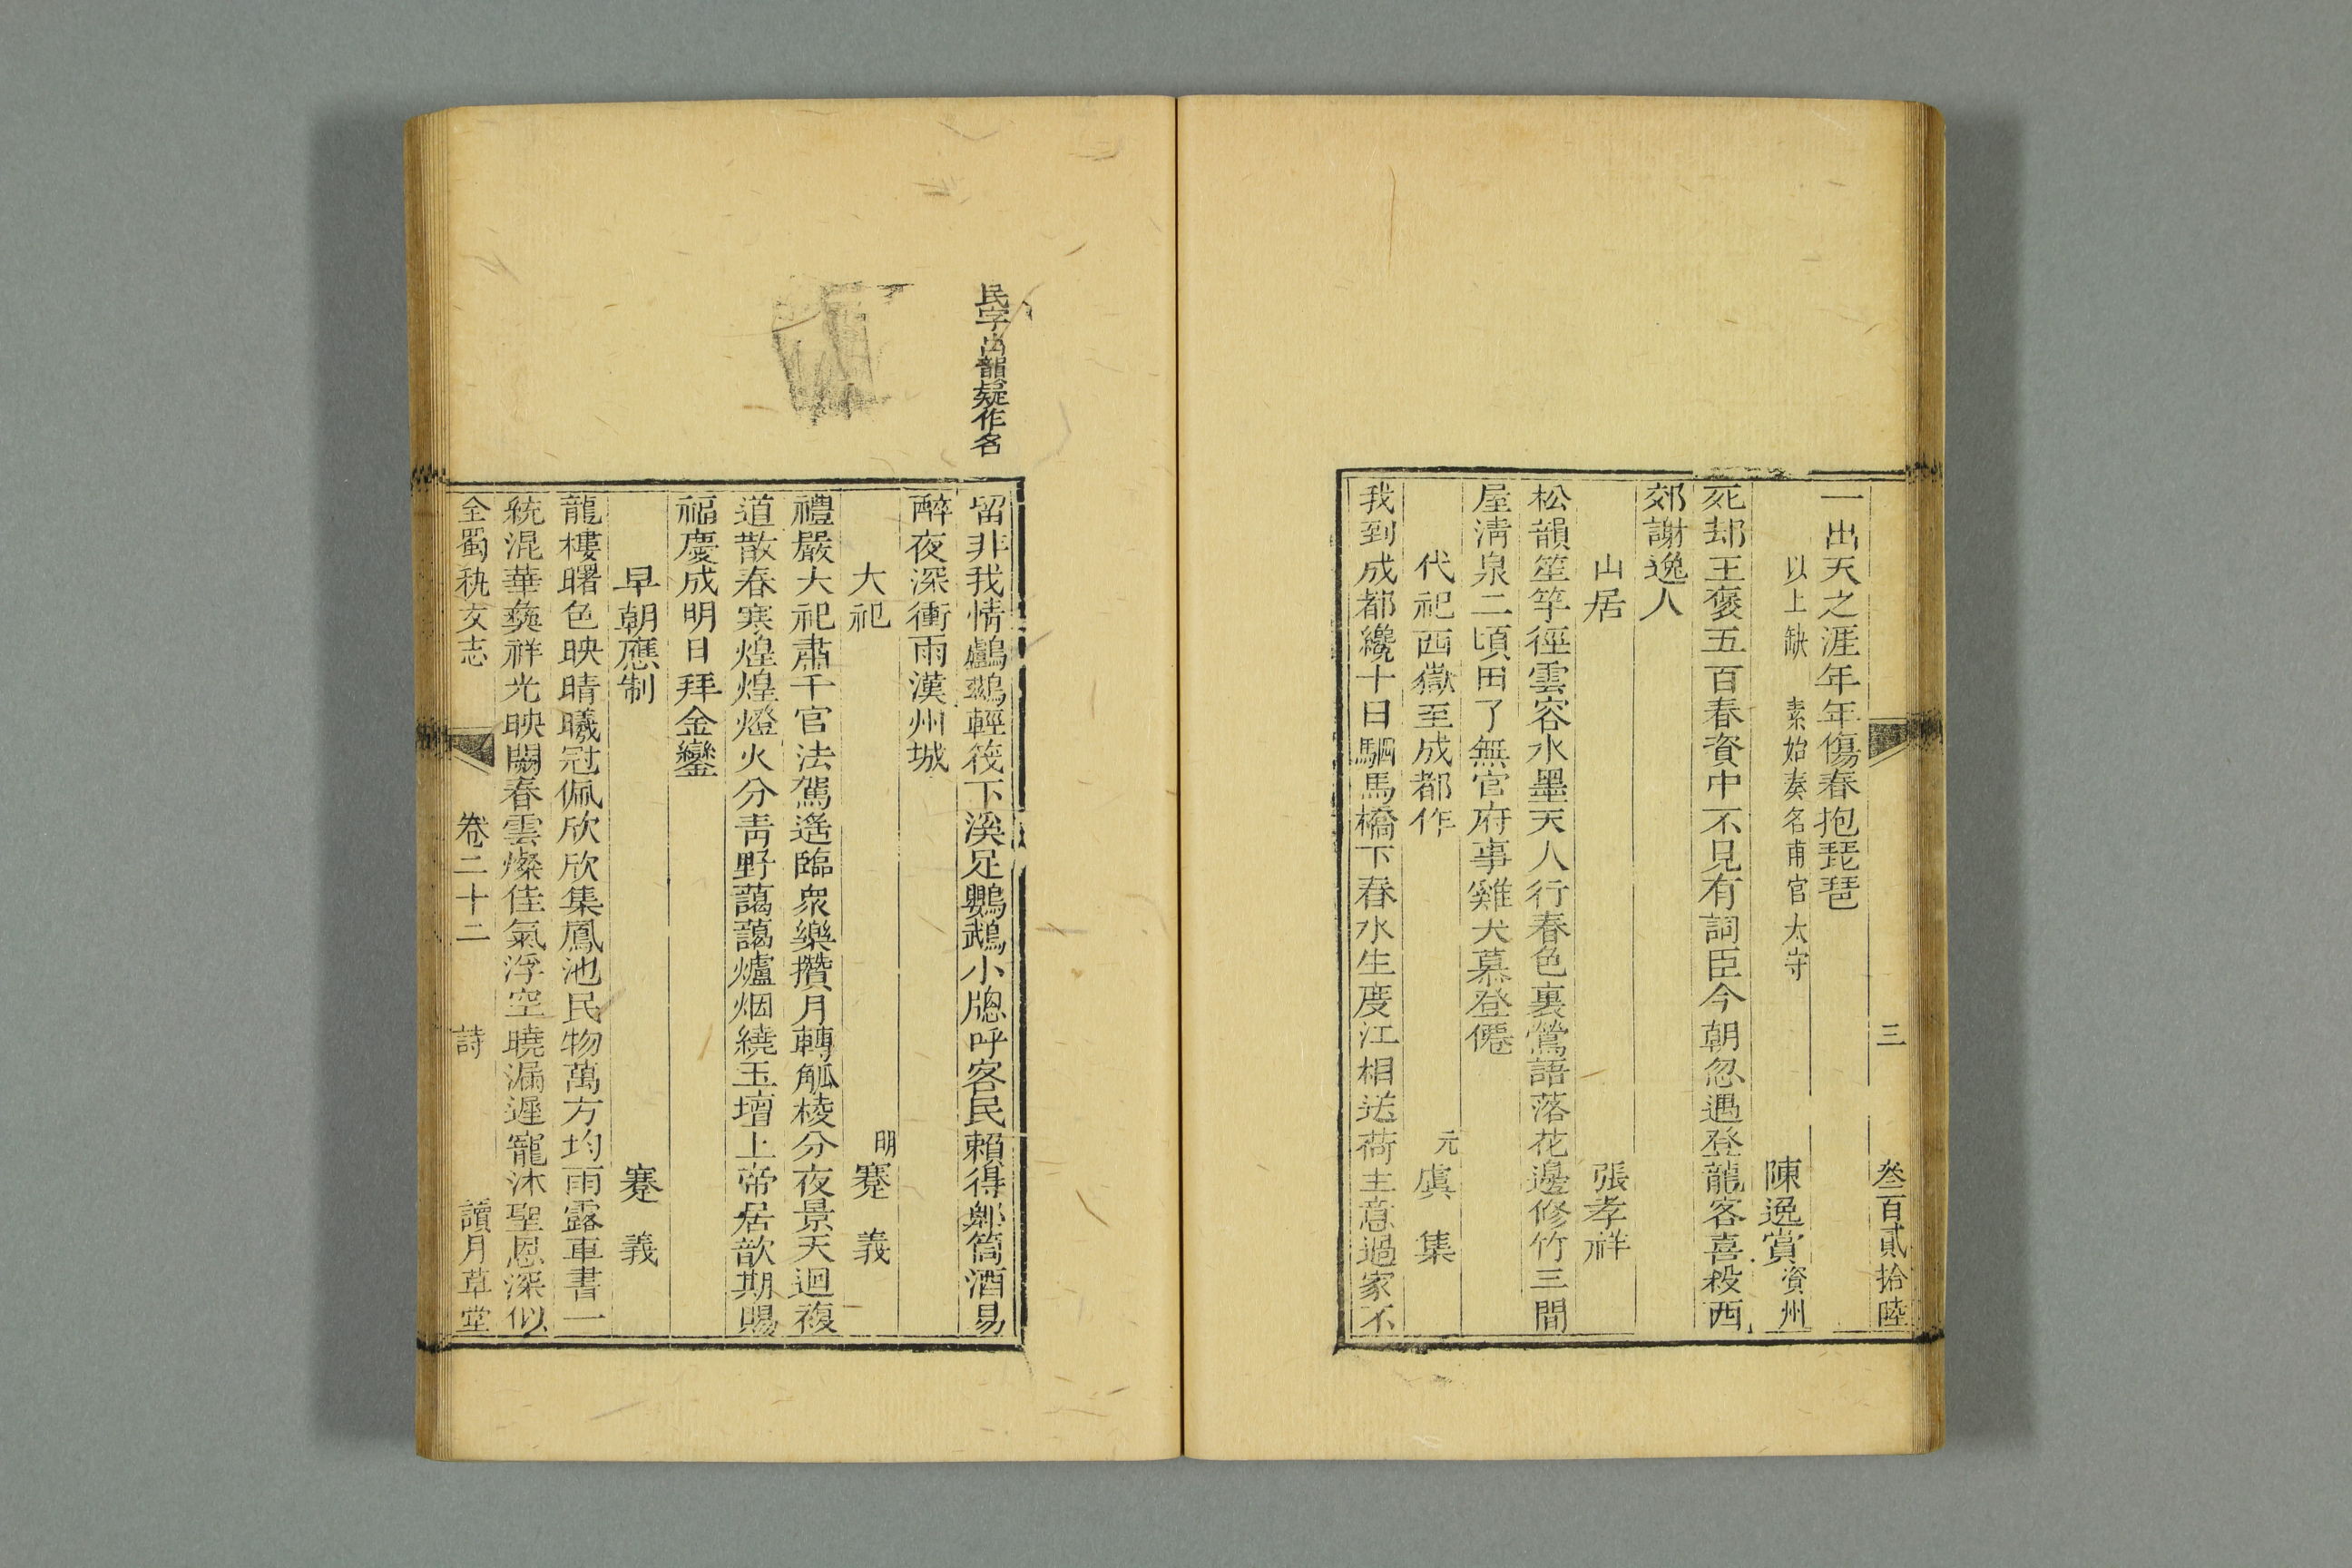 三　叁百貳拾陸
一出天之涯年年傷春抱琵琶
以上缺　素始奏名甫官太守　陳逸賞資州
死却王褒五百春資中不見有詞臣今朝忽遇登龍客喜殺西
郊謝逸人
山居　張孝祥
松韻笙竽徑雲容水墨天人行春色裏鶯語落花邊修竹三間
屋淸泉二頃田了無官府事雞犬慕登僊
代祀西嶽至成都作　元虞集
我到成都纔十日駟馬橋下春水生度江相送荷主意過家不
民字出韻疑作名
留非我情鸕鷀輕筏下溪足鸚鵡小牎呼客民賴得郫筒酒易
醉夜深衝雨漢州城
大祀　明蹇義
禮嚴大祀肅千官法駕遙臨衆樂攢月轉觚棱分夜景天迴複
道散春寒煌煌燈火分靑野藹藹爐烟繞玉壇上帝居歆期賜
福慶成明日拜金鑾
早朝應制　蹇義
龍樓曙色映晴曦冠佩欣欣集鳳池民物萬方均雨露車書一
統混華彝祥光映闕春雲燦佳氣浮空曉漏遲寵沐聖恩深似
全蜀秇文志　卷二十二　詩　讀月草堂